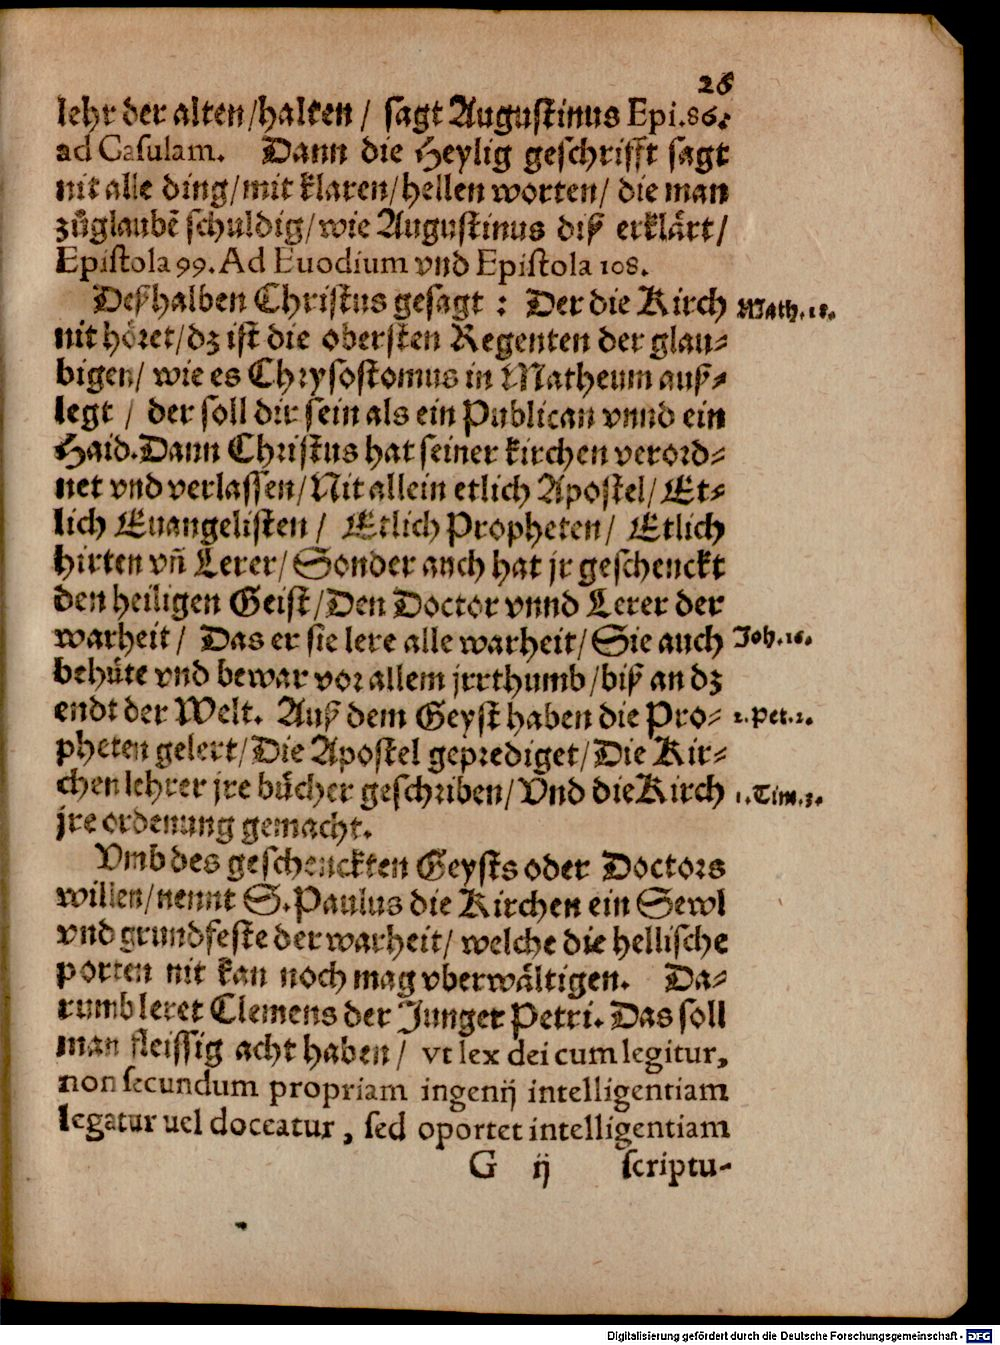 26
lehr der alten/halten/ sagt Augustinus Epi.86.
ad Casulam. Dann die Heylig geschrifft sagt
nit alle ding/mit klaren/hellen worten/ die man
zůglaubē schuldig/wie Augustinus diß erklärt/
Epistola 99. Ad Euodium vnd Epistola 108.
Deßhalben Christus gesagt : Der die Kirch
Math.18.
nit höret/dz ist die obersten Regenten der glau-
bigen/ wie es Chrysostomus in Matheum auß-
legt / der soll dir sein als ein Publican vnnd ein
Haid. Dann Christus hat seiner kirchen verord-
net vnd verlassen/Nit allein etlich Apostel/Et-
lich Euangelisten/ Etlich Propheten/ Etlich
hirten vñ Lerer/Sonder auch hat jr geschenckt
den heiligen Geist/Den Doctor vnnd Lerer der
warheit/ Das er sie lere alle warheit/Sie auch
Joh.16.
behüte vnd bewar vor allem jrrthumb/biß an dz
endt der Welt. Auß dem Geyst haben die Pro-
2.Pet.1.
pheten gelert/Die Apostel geprediget/Die Kir-
chen lehrer jre bücher geschriben/Vnd die Kirch
1.Tim.3.
jre ordenung gemacht.
Vmb des geschenckten Geysts oder Doctors
willen/nennt S.Paulus die Kirchen ein Sewl
vnd grundfeste der warheit/ welche die hellische
porten nit kan noch mag vberwältigen. Da-
rumb leret Clemens der Junger Petri. Das soll
man fleissig acht haben/ vt lex dei cum legitur,
non secundum propriam ingenij intelligentiam
legatur uel doceatur, sed oportet intelligentiam
G ij scriptu-
Digitalisierung gefördert durch die Deutsche Forschungsgemeinschaft - DFG